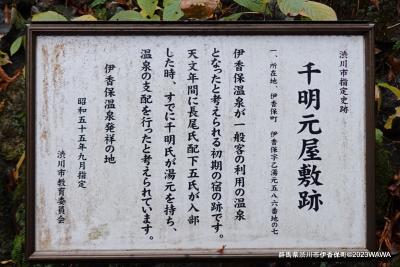 渋川市指定史跡
千明元屋敷跡
一、所在地、伊香保町 伊香保字乙湯元五八六番地の七
伊香保温泉が一般客の利用の温泉
となったと考えられる初期の宿の跡です。
天文年間に長尾氏配下五氏が入部
した時、すでに千明氏が湯元を持ち、
温泉の支配を行ったと考えられています。
伊香保温泉発祥の地
昭和五十五年九月指定
渋川市教育委員会
群馬県渋川市伊香保町©2023WAWA